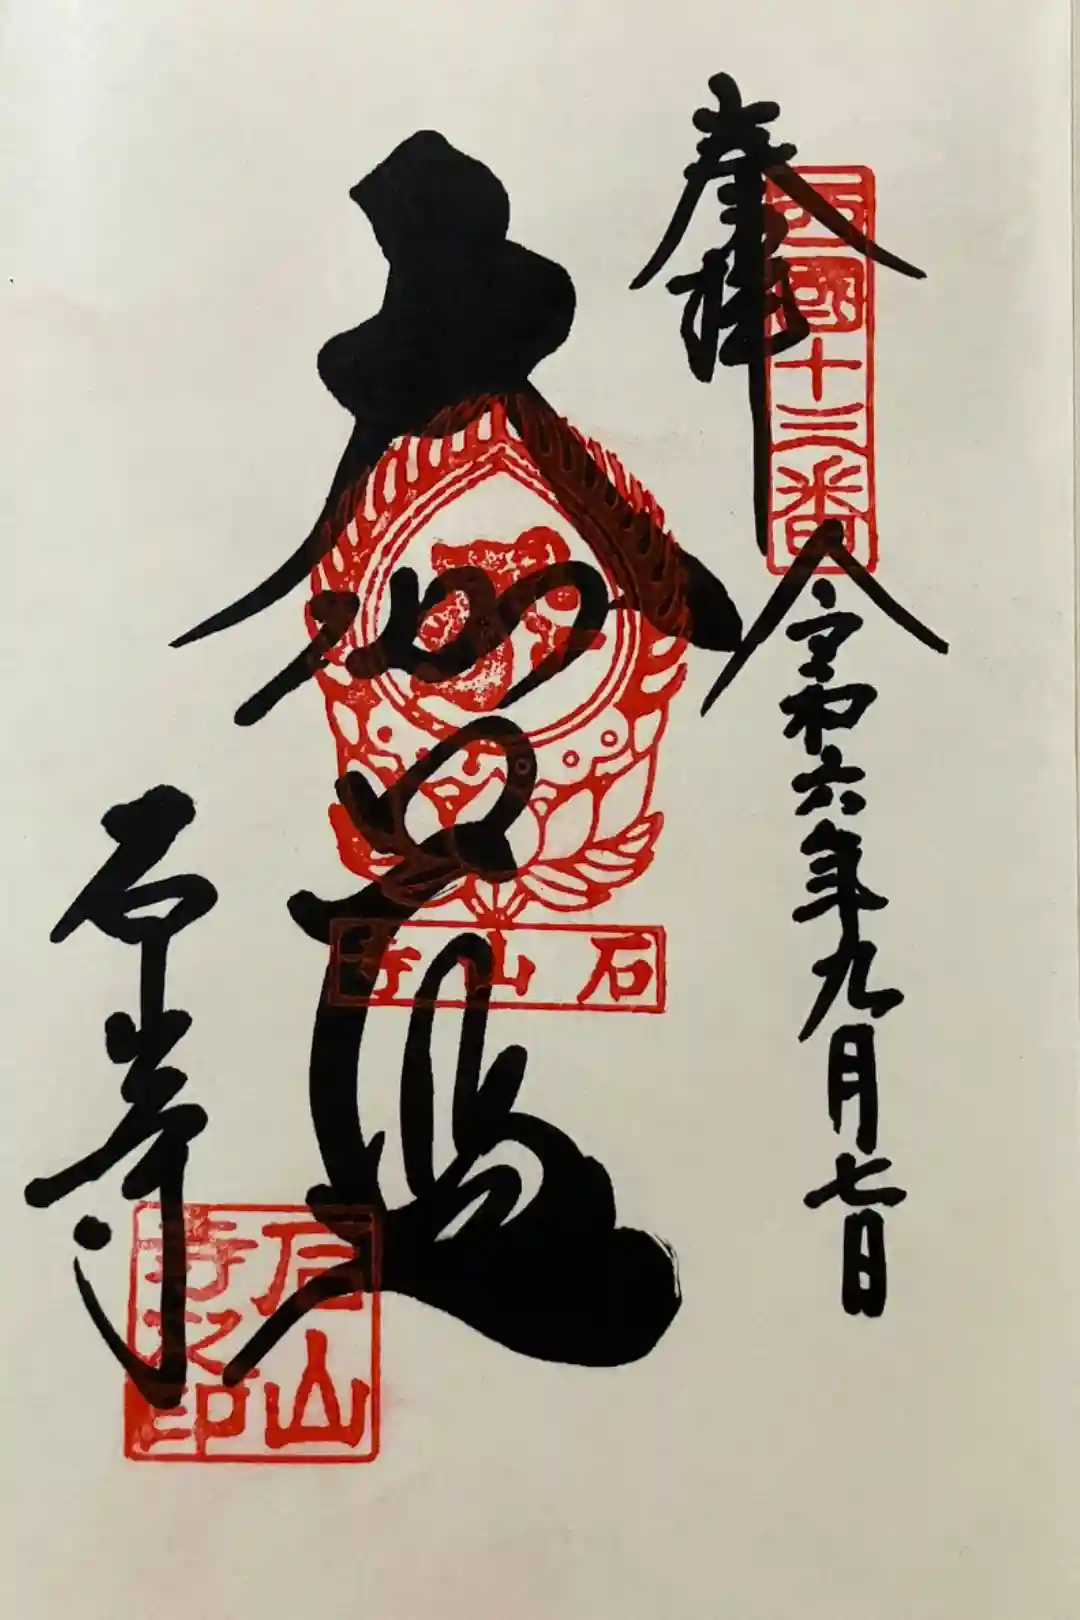 奉拝
西國十三番
令和六年九月七日
大伽藍
石山寺
石山寺
石山寺之印